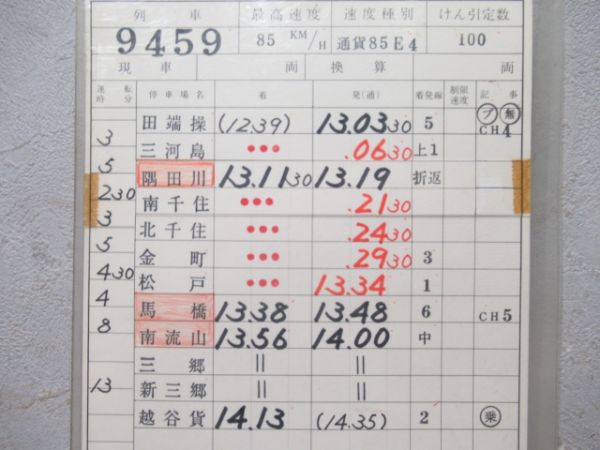 列車 最高速度 速度種別 けん引定数
9459 85 KM/H 通貨85E4 100
現車 両 換算 両
運転時分 停車場名 着 発(通) 着発線 制限速度 記事
田端操 (12.39) 13.0330 5 ブ 無 CH4
3
三河島 ••• .0630 上1
5
隅田川 13.1130 13.19 折返
230
南千住 ••• .2130
3
北千住 ••• .2430
5
金町 ••• .2930 3
430
松戸 ••• 13.34 1
4
馬橋 13.38 13.48 6 CH5
8
南流山 13.56 14.00 中
三郷 || ||
13
新三郷 || ||
越谷貨 14.13 (14.35) 2 乗